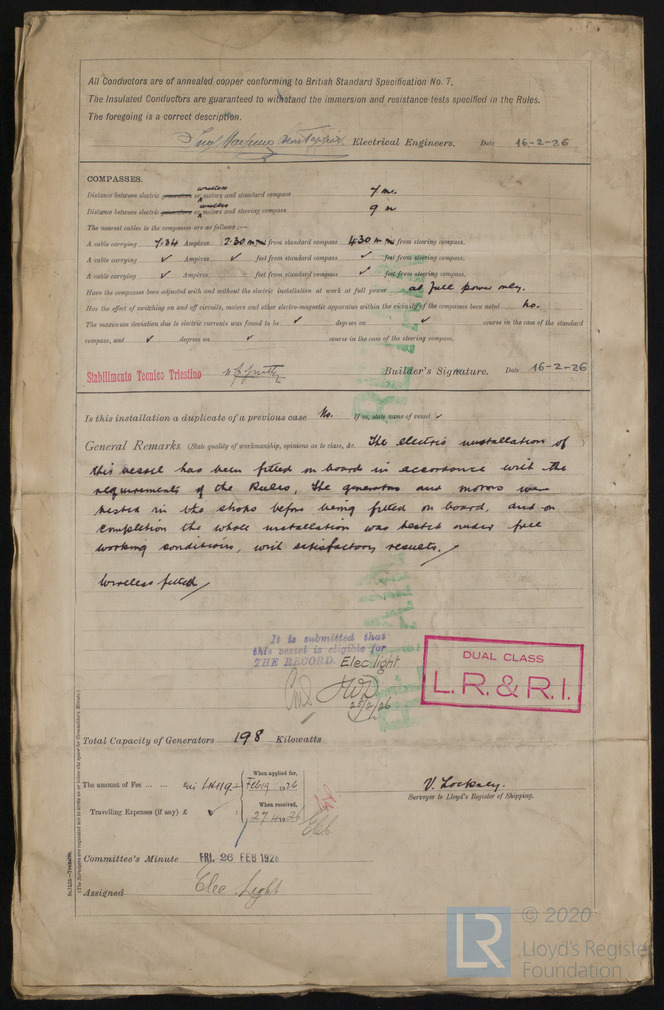 All Conductors are of annealed copper conforming to British Standard Specification No. 7.
The Insulated Conductors are guaranteed to withstand the immersion and resistance tests specified in the Rules.
The foregoing is a correct description.
Electrical Engineers. Date 16-2-26
COMPASSES.
wireless
Distance between electric generators or motors and standard compass 7 m.
wireless
Distance between electric generators or motors and steering compass 9 m
The nearest cables to the compasses are as follows :—
A cable carrying 7.34 Ampères 2.30 m feet from standard compass 4.30 m feet from steering compass.
A cable carrying ✓ Ampères ✓ feet from standard compass ✓ feet from steering compass.
A cable carrying ✓ Ampères feet from standard compass ✓ feet from steering compass.
Have the compasses been adjusted with and without the electric installation at work at full power at full power only.
Has the effect of switching on and off circuits, motors and other electro-magnetic apparatus within the vicinity of the compasses been noted no.
The maximum deviation due to electric currents was found to be ✓ degrees on ✓ course in the case of the standard
compass, and ✓ degrees on ✓ course in the case of the steering compass.
Stabilimento Tecnico Triestino Builder's Signature. Date 16-2-26
Is this installation a duplicate of a previous case No. If so, state name of vessel ✓
General Remarks (State quality of workmanship, opinions as to class, &c. The electric installation of
this vessel has been fitted on board in accordance with the
requirements of the Rules. The generators and motors were
tested in the shops before being fitted on board, and on
completion the whole installation was tested under full
working conditions, with satisfactory results.
Wireless fitted
It is submitted that
this vessel is eligible for
THE RECORD. Elec. light.
25/2/26
DUAL CLASS
L.R. & R.I.
Total Capacity of Generators 198 Kilowatts
The amount of Fee ... ... When applied for,
Feb 19 1926
When received,
Travelling Expenses (if any) £ ✓ 27.4.1926
V. Lockney.
Surveyor to Lloyd's Register of Shipping.
Committee's Minute FRI. 26 FEB 1926
Assigned Elec. Light
© 2020
LR
Lloyd's Register
Foundation